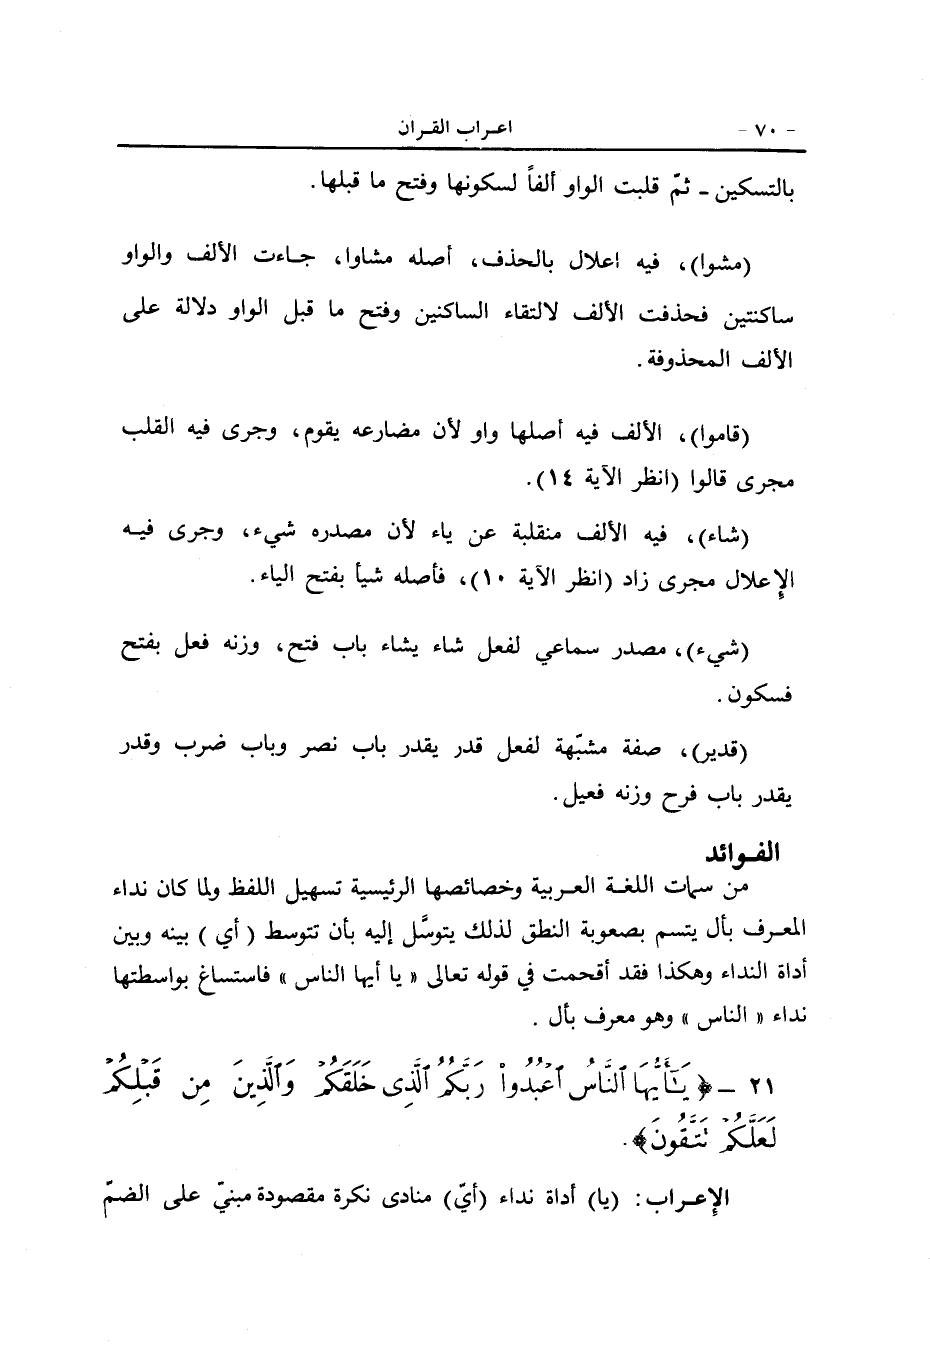 - ٧٠ -
اعـراب القـران
بالتسكين - ثمّ قلبت الواو ألفاً لسكونها وفتح ما قبلها.
(مشوا)، فيه اعلال بالحذف، أصله مشاوا، جـاءت الألف والواو
ساكنتين فحذفت الألف لالتقاء الساكنين وفتح ما قبل الواو دلالة على
الألف المحذوفة.
(قاموا)، الألف فيه أصلها واو لأن مضارعه يقوم، وجرى فيه القلب
مجرى قالوا (انظر الآية ١٤).
(شاء)، فيه الألف منقلبة عن ياء لأن مصدره شيء، وجرى فيـه
الإعلال مجرى زاد (انظر الآية ١٠)، فأصله شيأ بفتح الياء.
(شيء)، مصدر سماعي لفعل شاء يشاء باب فتح، وزنه فعل بفتح
فسكون.
(قدير)، صفة مشبّهة لفعل قدر يقدر باب نصر وباب ضرب وقدر
يقدر باب فرح وزنه فعيل.
الفـوائد
من سمات اللغـة العـربية وخصائصها الرئيسية تسهيل اللفظ ولما كان نداء
المعـرف بأل يتسم بصعوبة النطق لذلك يتوسَّل إليه بأن تتوسط ( أي ) بينه وبين
أداة النداء وهكذا فقد أقحمت في قوله تعالى « يا أيها الناس » فاستساغ بواسطتها
نداء « الناس » وهو معرف بأل .
٢١ - ﴿يَـٰٓأَيُّهَا ٱلنَّاسُ ٱعْبُدُوا۟ رَبَّكُمُ ٱلَّذِى خَلَقَكُمْ وَٱلَّذِينَ مِن قَبْلِكُمْ
لَعَلَّكُمْ تَتَّقُونَ﴾.
الإعـراب: (يا) أداة نداء (أيّ) منادى نكرة مقصودة مبنيّ على الضمّ